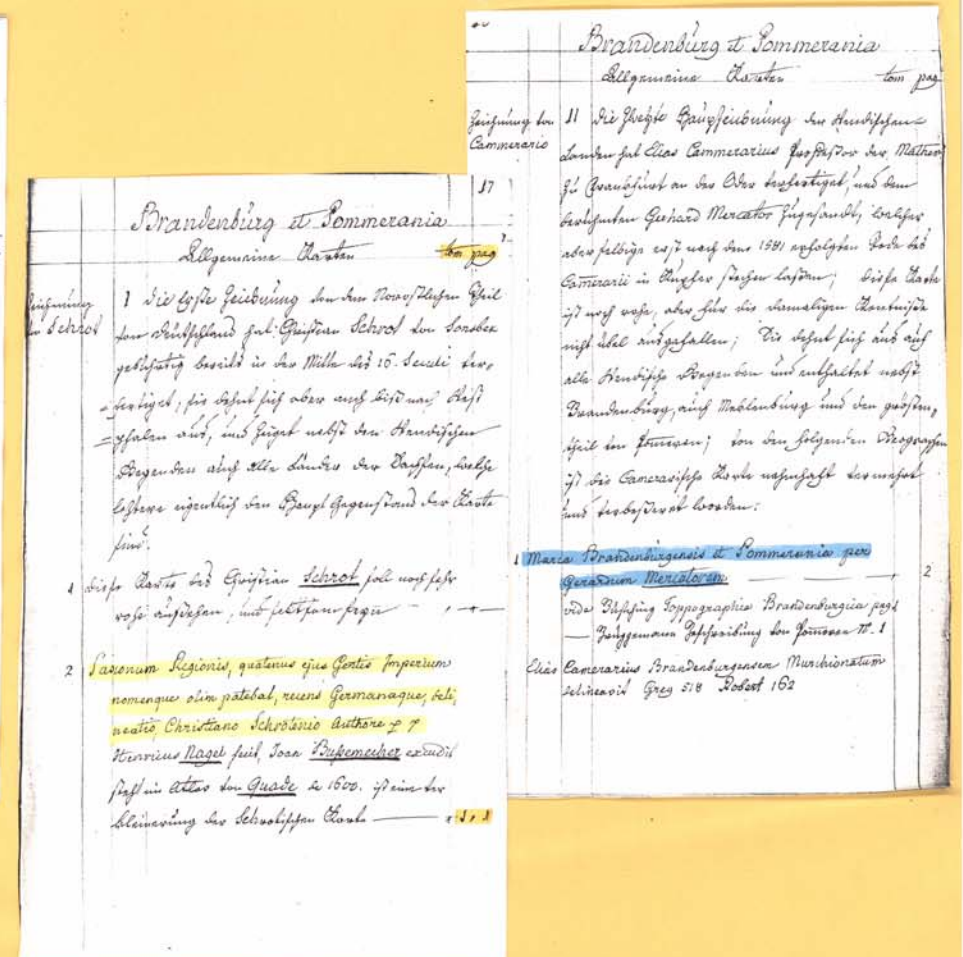 17
Brandenburg et Pommerania
Allgemeine Karten tom pag
Zeichnung
von Schrot
I die Erste Zeichnung von dem Nordostlichen Theil
von Deutschland hat Christian Schrot von Sonsbek
gebührtig bereits in der Mitte des 16. Seculi ver-
fertiget, sie dehnt sich aber auch biss nach West
phalen aus, und zeiget nebst den Wendischen
Gegenden auch alle Länder der Sachsen, welche
leztere eigentlich den Haupt Gegenstand der Karte
sind.
1 diese Karte des Christian Schrot soll noch sehr
rohe aussehen, und seltsam seyn
2 Saxonum Regionis, quatenus ejus Gentis Imperium
nomenque olim patebat, recens Germanaque, deli,
neatio, Christiano Schrotenio Authore
Henricus Nagel fecit, Joan Bussemecher excudit
steht im Atlas von Quade de 1600. ist eine ver
kleinerung der Schrotischen Karte 1, 1
Brandenburg et Pommerania
Allgemeine Karten tom pag
Zeichnung von
Cammerario
II die Zweyte Hauptzeichnung der Wendischen
Landen hat Elias Cammerarius Professor der Mathem
zu Frankfurt an der Oder verfertiget, und dem
berühmten Gerhard Mercator zugesandt, welcher
aber selbige erst nach dem 1581 erfolgten Tode des
Camerarii in Kupfer stechen lassen; diese Karte
ist noch rohe, aber für die damaligen Kentnisse
nicht übel ausgefallen; Sie dehnt sich aus auf
alle Wendische Gegenden und enthaltet nebst
Brandenburg, auch Meklenburg und den grösten,
theil von Pomeren; von den folgenden Geographen
ist die Camerarische Karte nahmhaft vermehrt
und verbesseret worden:
1 Marca Brandenburgensis et Pommerania per
Gerardum Mercatorem 2
vide Büsching Toppographia Brandenburgica pag 1
— Brüggemann Beschreibung von Pomeren N. 1
Elias Camerarius Brandenburgensem Marchionatum
delineavit Greg 518 Robert 162